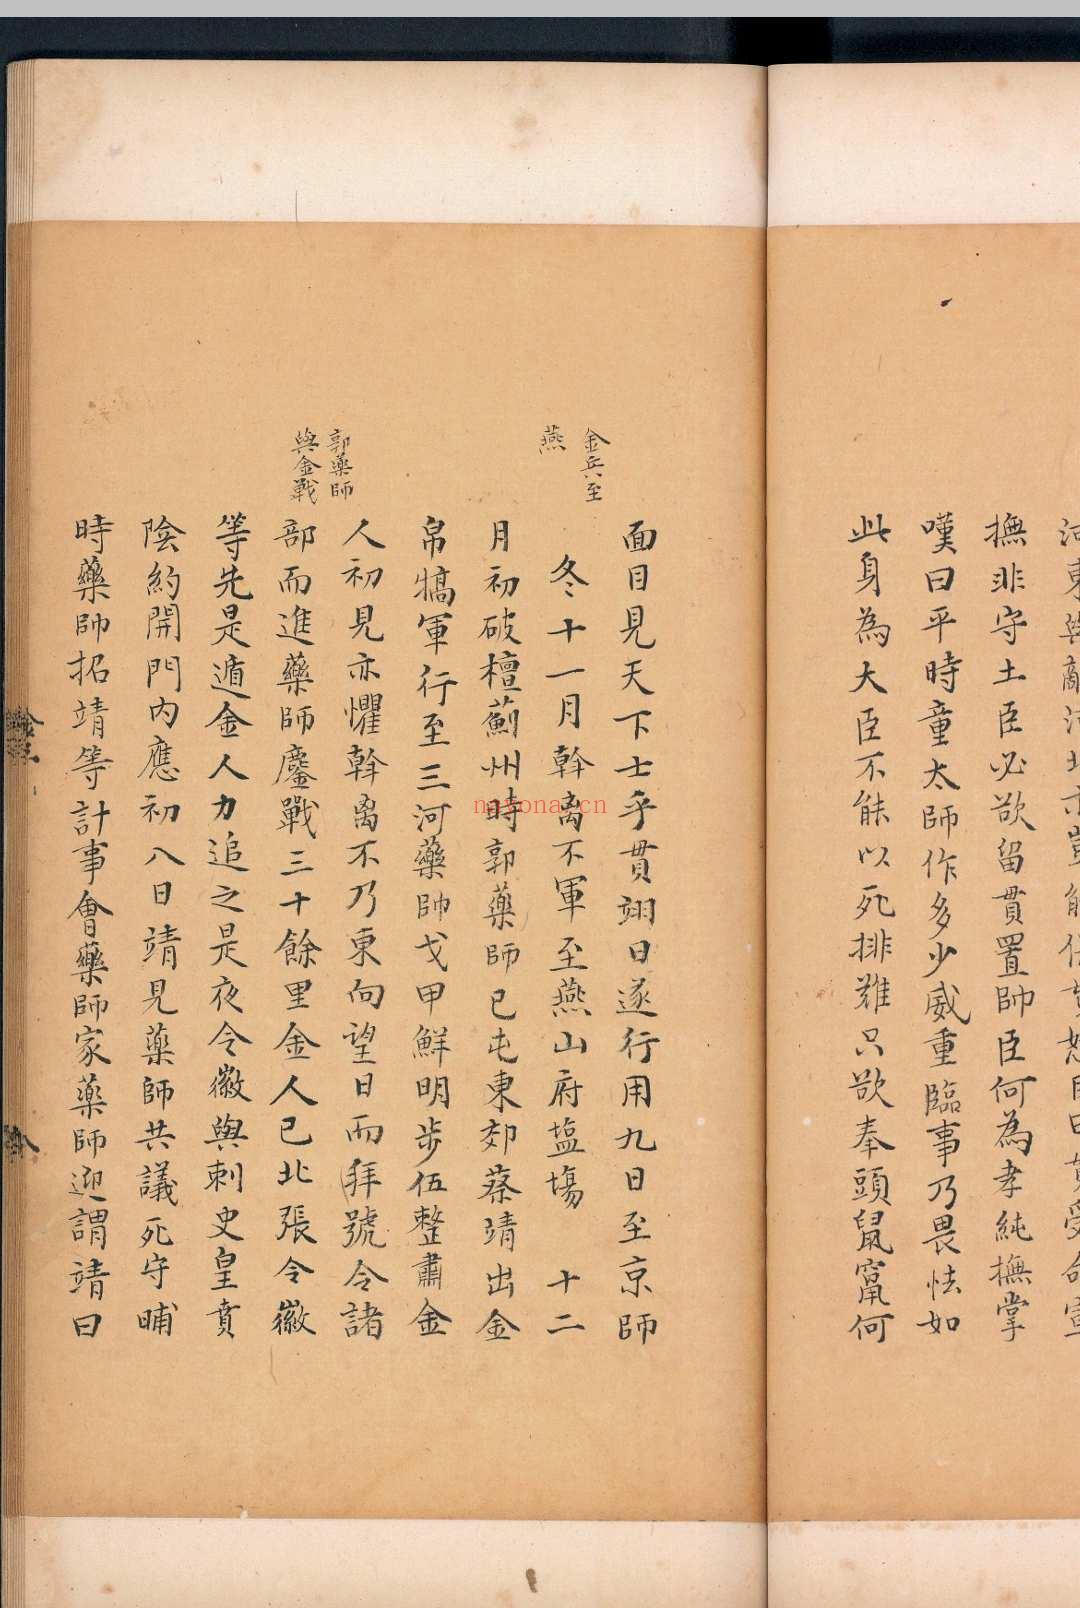 撫非守土臣必欲留貫置帥臣何為孝純撫掌
嘆曰平時童太師作多少威重臨事乃畏怯如
此身為大臣不能以死排難只欲奉頭鼠竄何
面目見天下士乎貫翊日遂行用九日至京師
金兵至
燕
冬十一月斡离不軍至燕山府塩場 十二
月初破檀薊州時郭藥師已屯東郊蔡靖出金
帛犒軍行至三河藥師戈甲鮮明步伍整肅金
人初見亦懼斡离不乃東向望日而拜號令諸
郭藥師
與金戰
部而進藥師鏖戰三十餘里金人已北張令徽
等先是遁金人力追之是夜令徽與刺史皇賁
陰約開門內應初八日靖見藥師共議死守晡
時藥師招靖等計事會藥師家藥師迎謂靖曰
nayona.cn